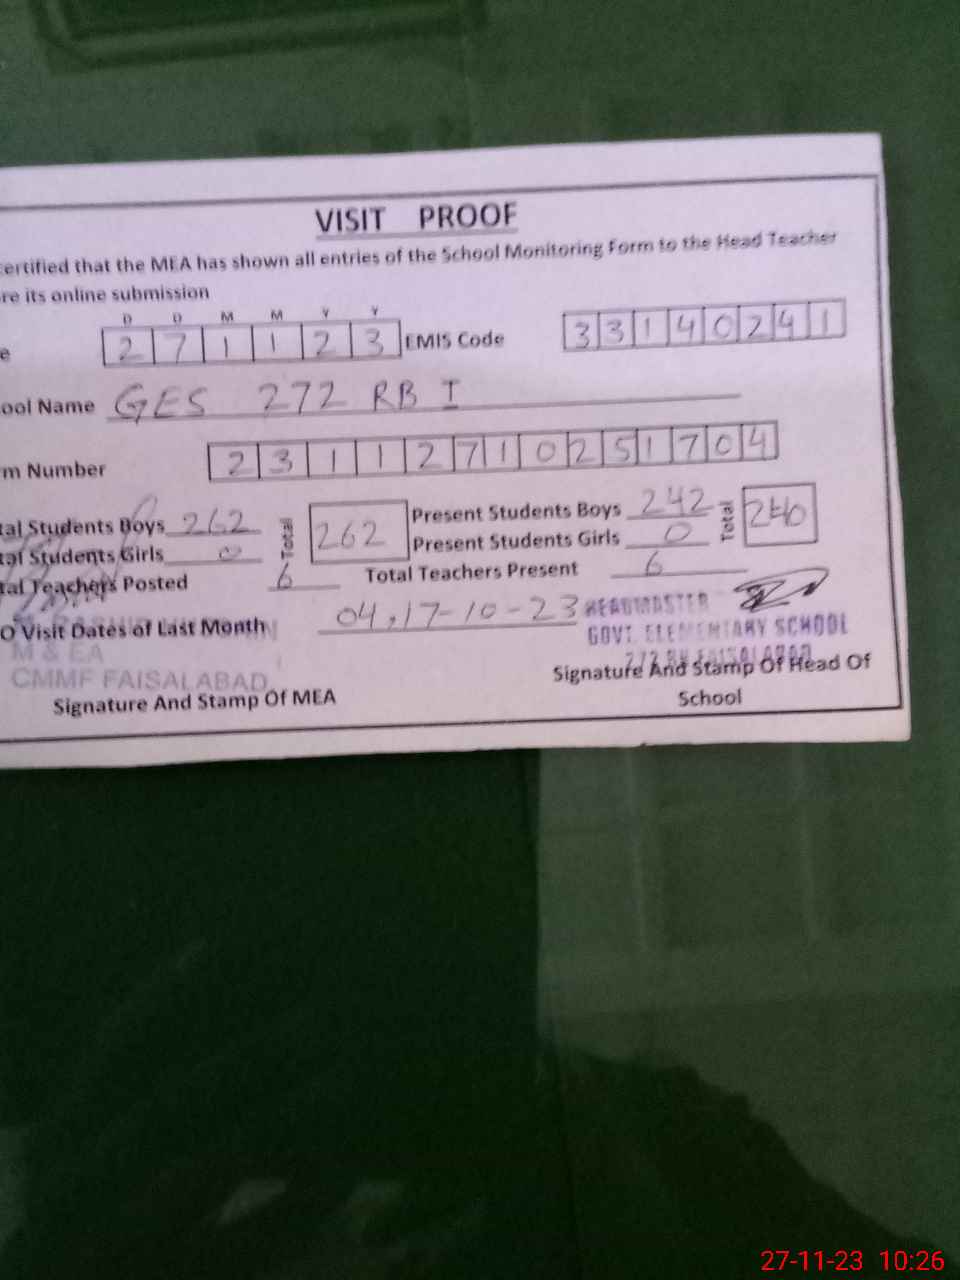 VISIT PROOF
certified that the MEA has shown all entries of the School Monitoring Form to the Head Teacher
re its online submission
D D M M Y Y
e 2 7 1 1 2 3 EMIS Code 3 3 1 4 0 2 4 1
ool Name GES 272 RB I
m Number 2 3 1 1 2 7 1 0 2 5 1 7 0 4
tal Students Boys 262 Total 262 Present Students Boys 242 Total
tal Students Girls 0 Present Students Girls 0
tal Teachers Posted 6 Total Teachers Present 6
O Visit Dates of Last Month 04,17-10-23
HEADMASTER
GOVT. ELEMENTARY SCHOOL
272 RB FAISALABAD
M & EA
CMMF FAISALABAD
Signature And Stamp Of MEA
Signature And Stamp Of Head Of
School
27-11-23 10:26